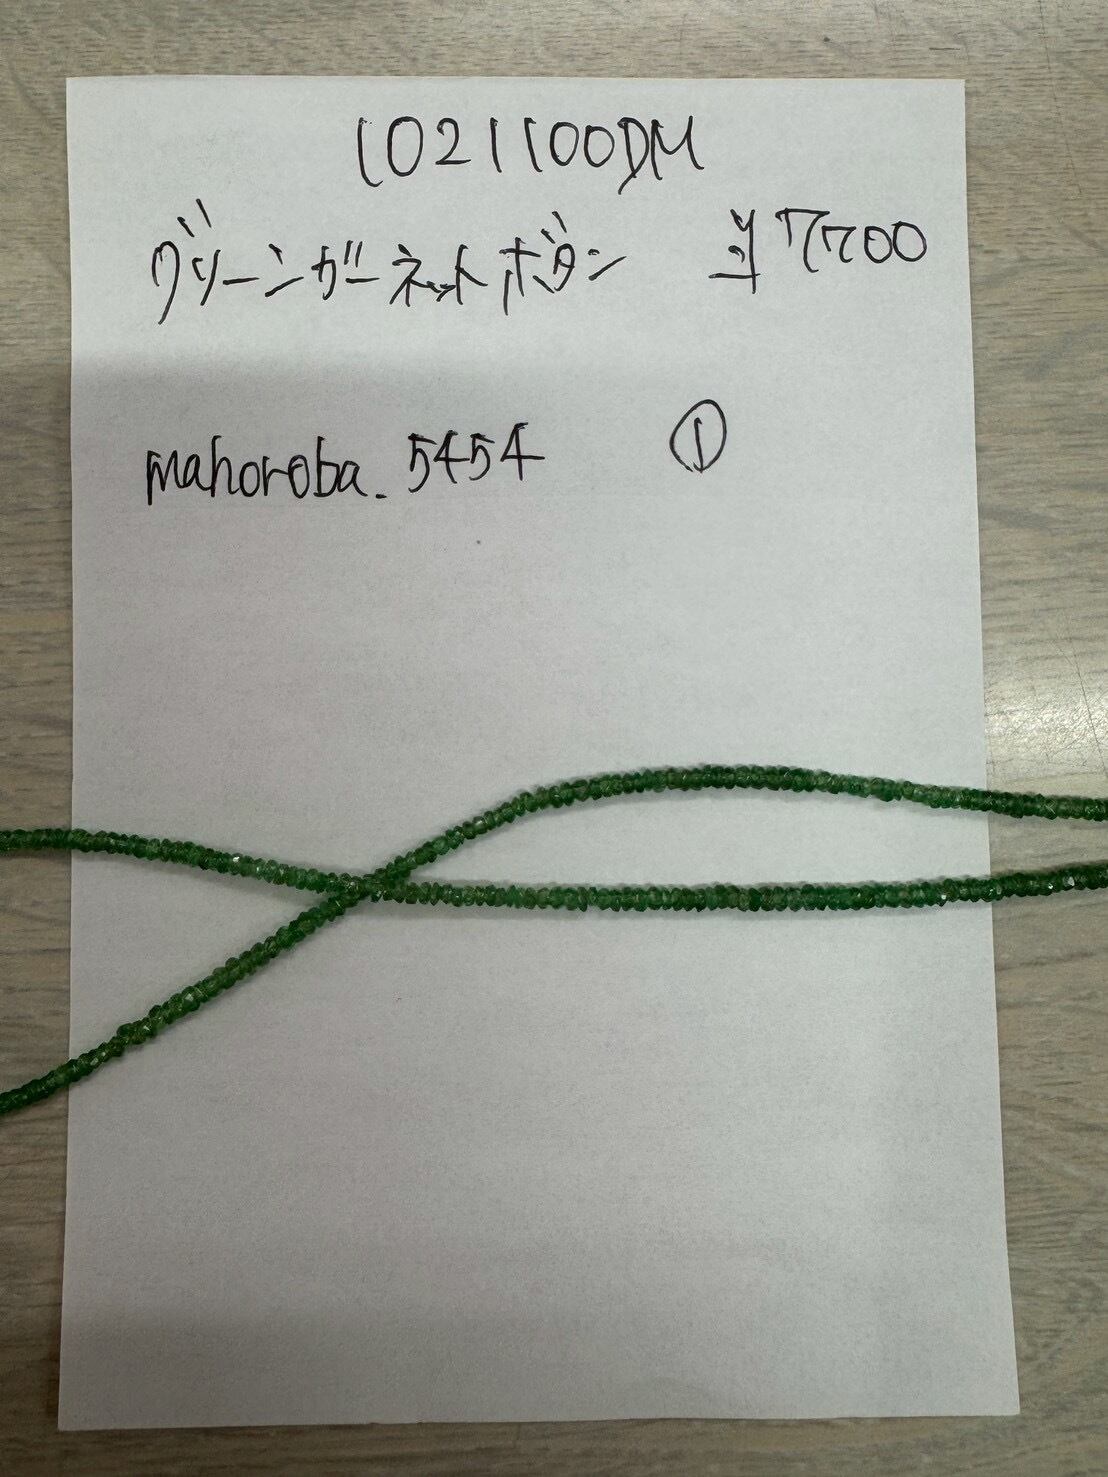 1021100DM
グリーンガーネットボタン ¥7700
mahoroba.5454 ①